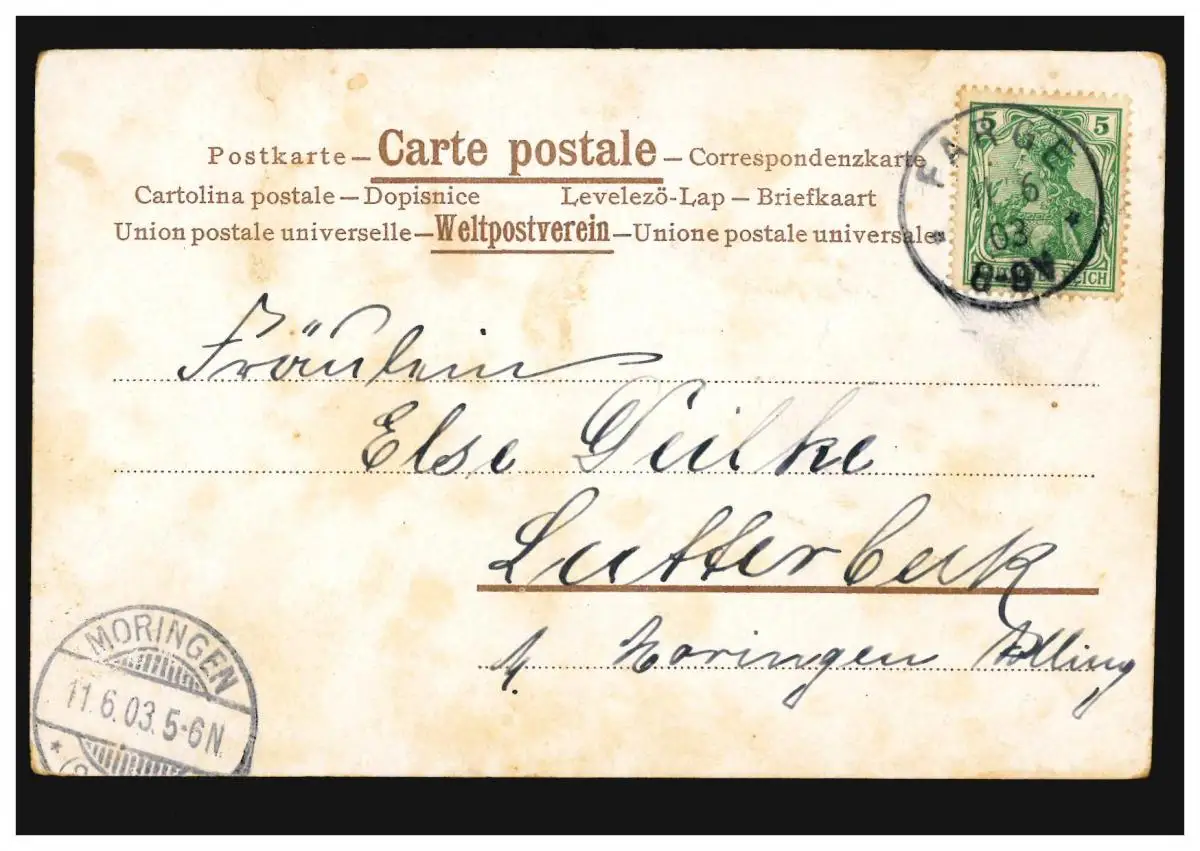 Postkarte – Carte postale – Correspondenzkarte
Cartolina postale – Dopisnice Levelezö-Lap – Briefkaart
Union postale universelle – Weltpostverein – Unione postale universale
5 5
REICH
FARGE
11 6
03
8-9V
Fräulein
Else Deilke
Lutterbeck
b/ Moringen Solling
MORINGEN
11.6.03.5-6N.